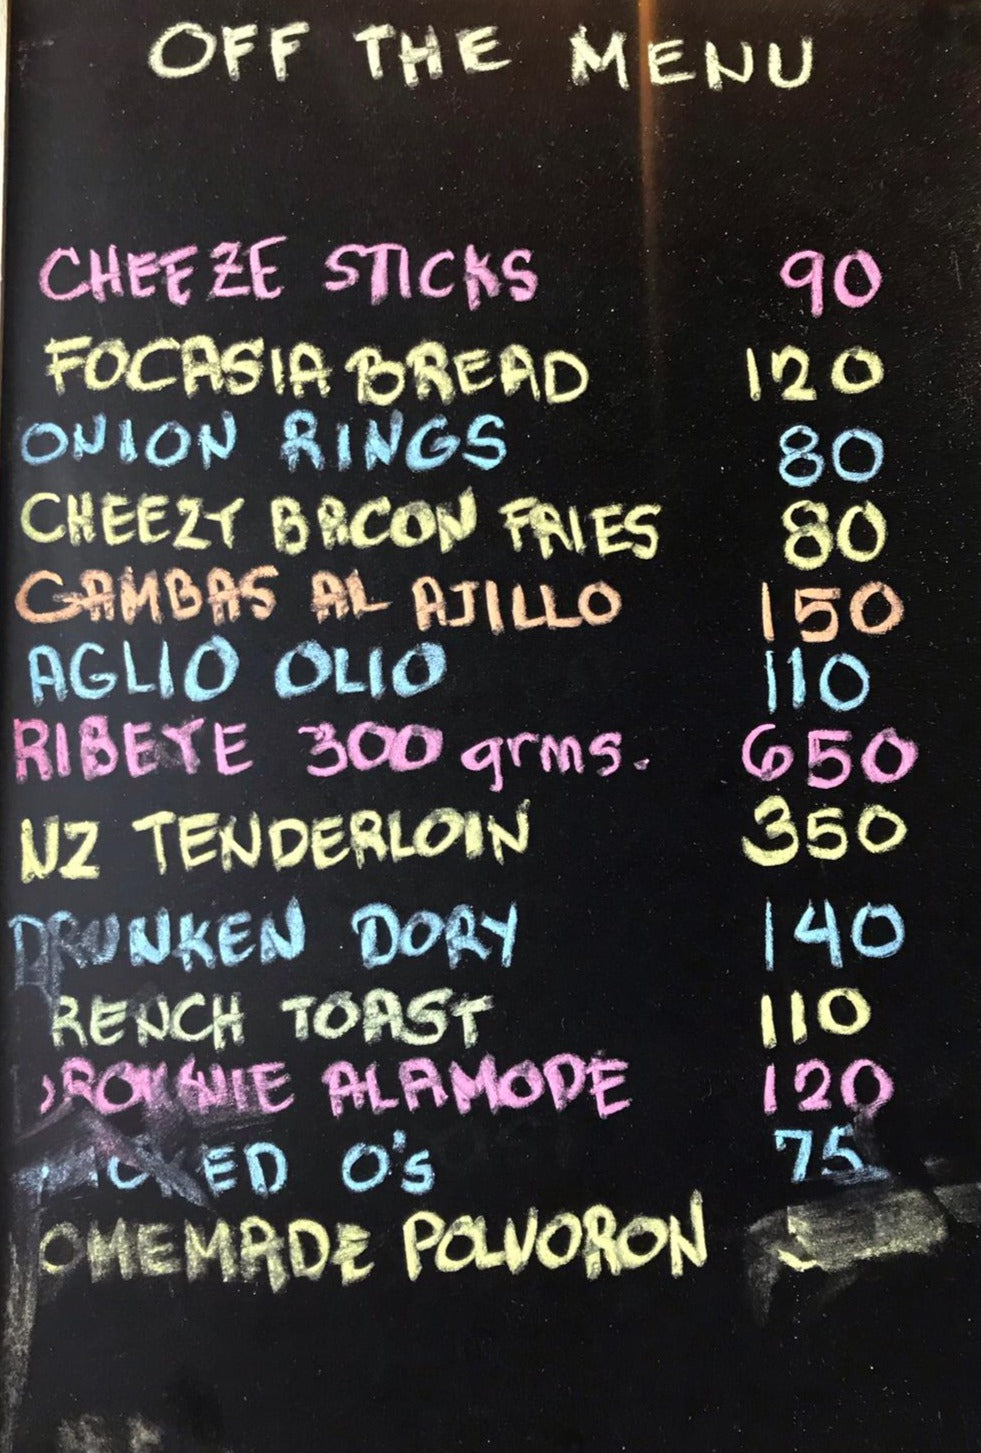 OFF THE MENU
CHEEZE STICKS 90
FOCASIA BREAD 120
ONION RINGS 80
CHEEZY BACON FRIES 80
GAMBAS AL AJILLO 150
AGLIO OLIO 110
RIBEYE 300 grms. 650
NZ TENDERLOIN 350
DRUNKEN DORY 140
RENCH TOAST 110
ALAMODE 120
O's 75
OMEMADE POLVORON